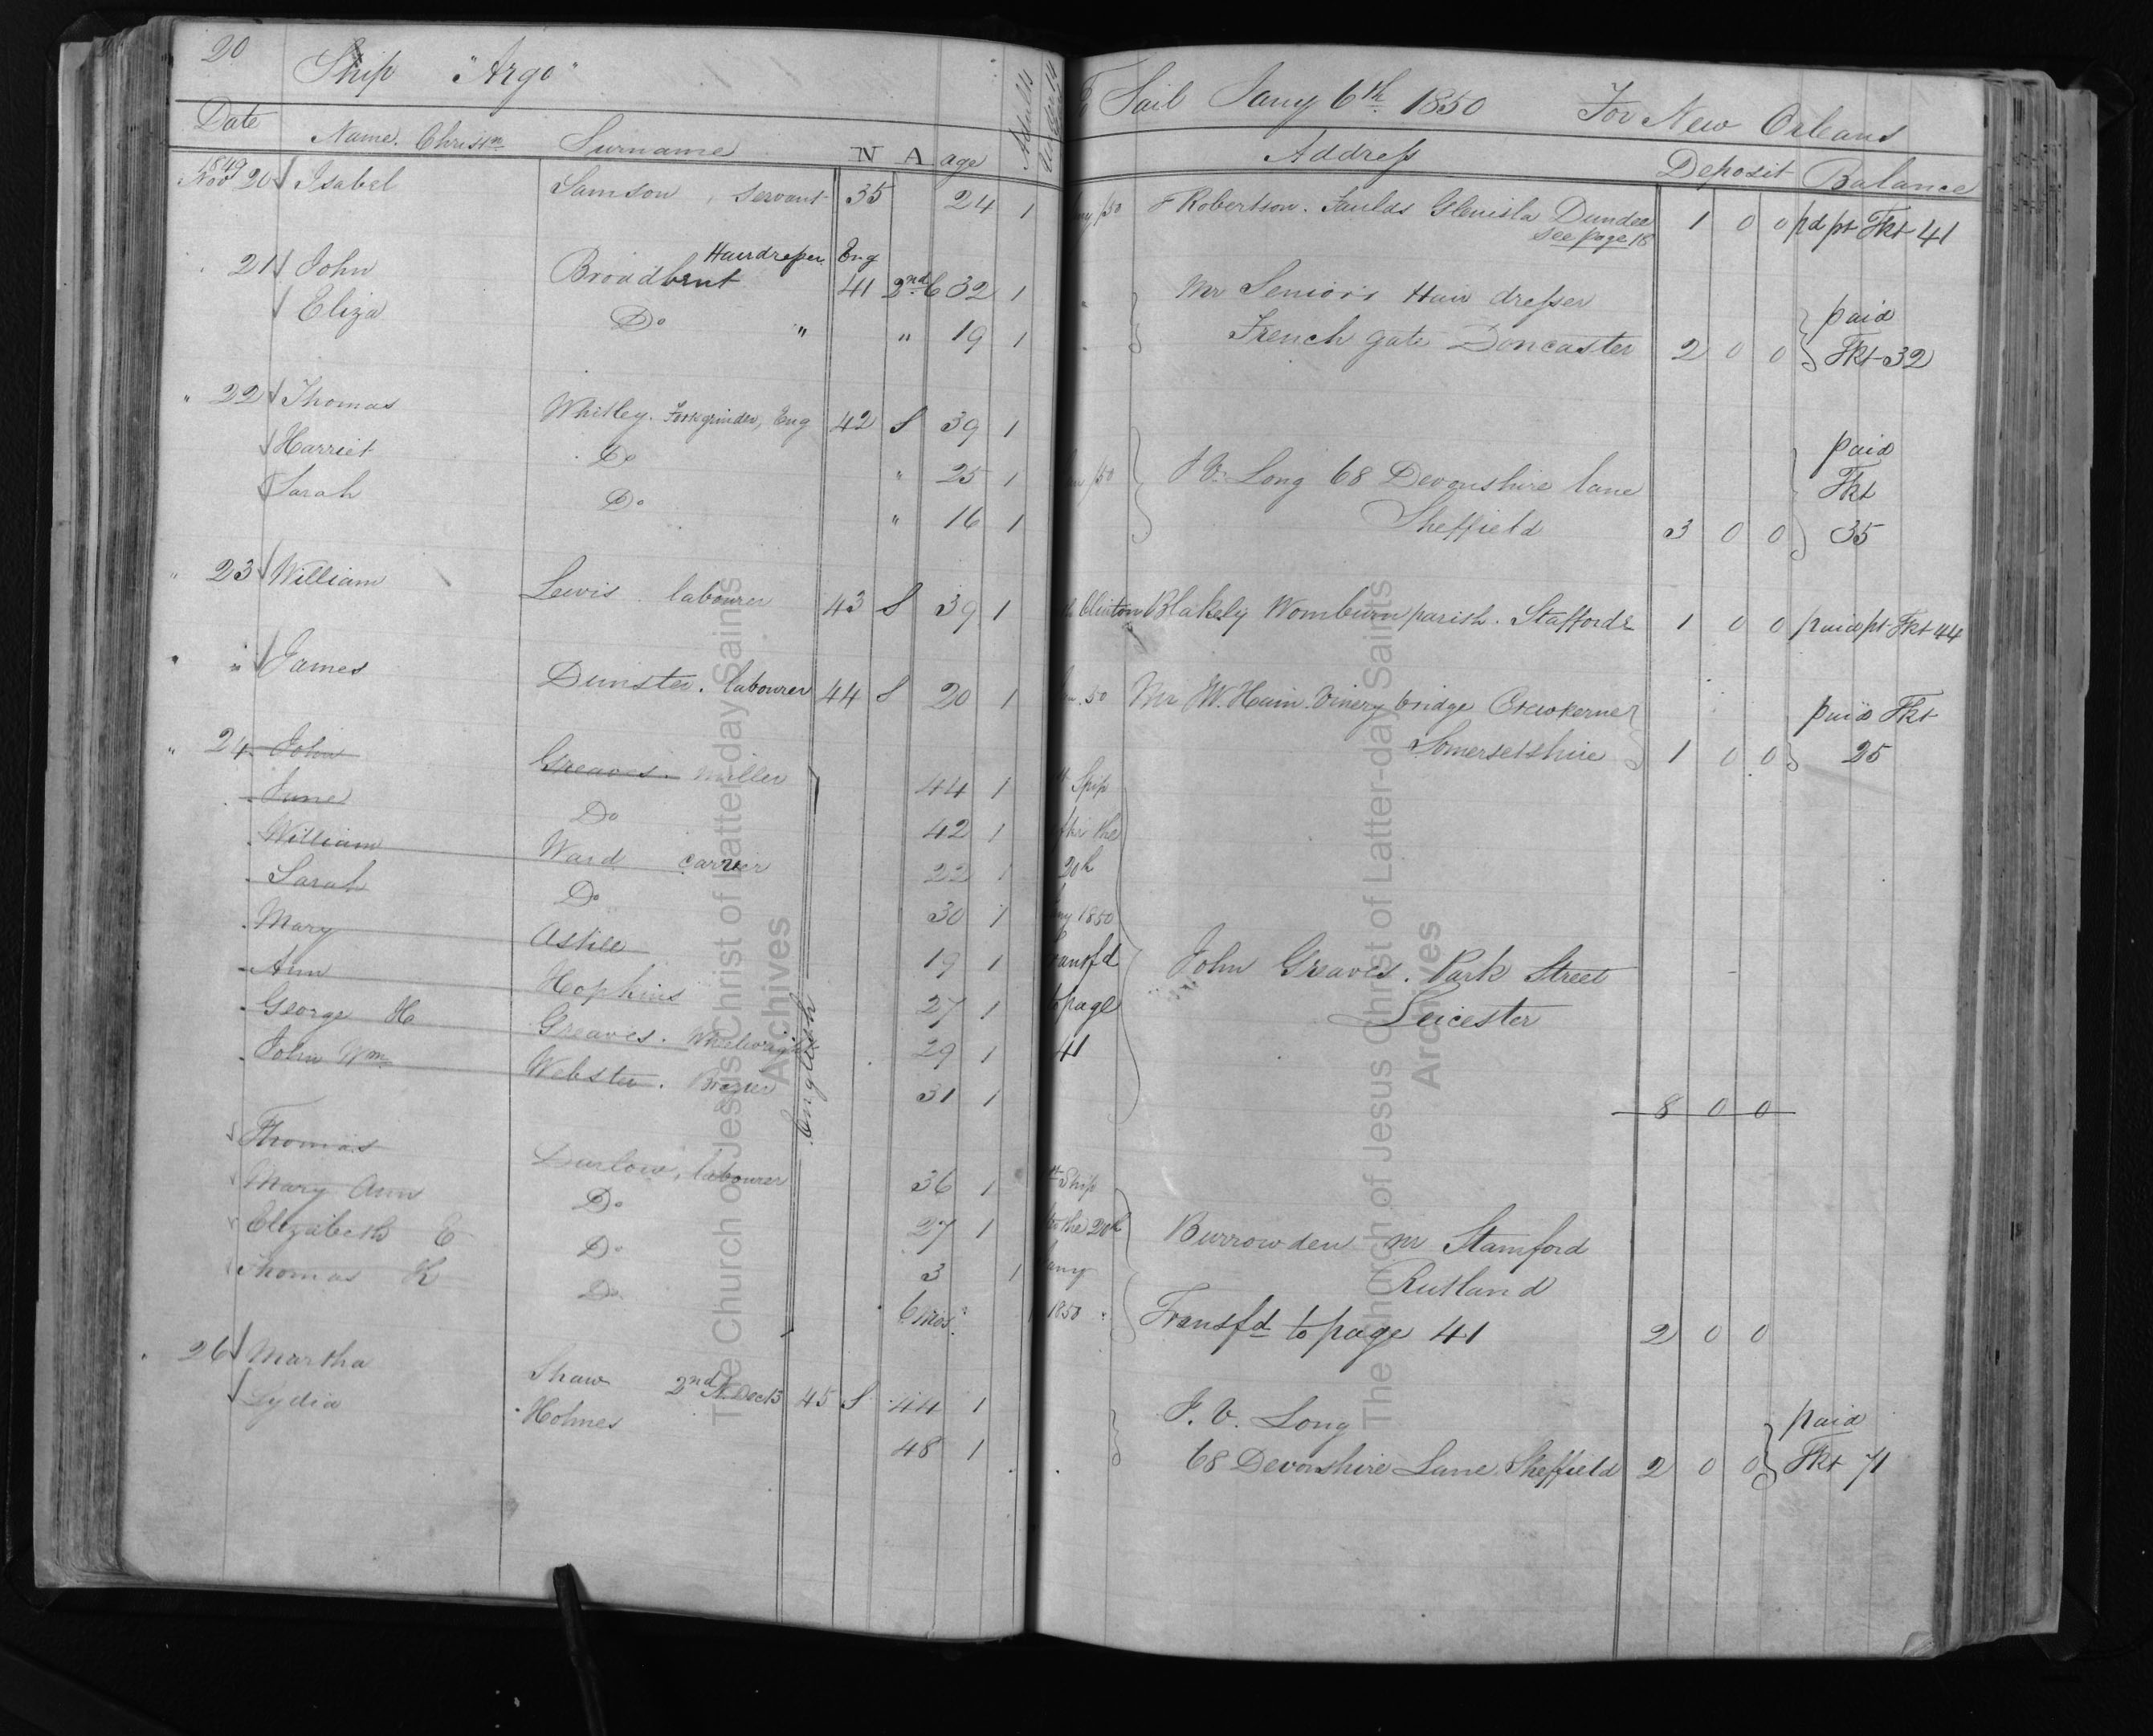 20 Ship "Argo" Adults Under 14
Date Name. Christn Surname N A age
1849
Nov 20 Isabel Samson, servant 35 24 1
Hairdresser Eng
21 John Broadbent 41 2nd C 32 1
Eliza Do " " 19 1
" 22 Thomas Whitley. Forkgrinder, Eng 42 S 39 1
Harriet Do " 25 1
Sarah Do " 16 1
" 23 William Lewis. labourer 43 S 39 1
" " James Dunster. labourer 44 S 20 1
" 24 John Greaves. Miller 44 1
Jane Do 42 1
William Ward carrier 22 1
Sarah Do 30 1
Mary Astill 19 1
Ann Hopkins 27 1
George H Greaves. Wheelwright 29 1
John Wm Webster. Brazier 31 1
English
Thomas Darlow, labourer 36 1
Mary Ann Do 27 1
Elizabeth E Do 3 1
Thomas K Do 6 Mos. 1
26 Martha Shaw 2nd N. Dec 15 45 S 44 1
Lydia Holmes 48 1
To Sail Jany 6th 1850 For New Orleans
Address Deposit Balance
/50 J Robertson. Faulds Glenisla Dundee 1 0 0 pd pt Tkt 41
see page 18
Mr Senior's Hair dresser paid
French gate Doncaster 2 0 0 Tkt 32
paid
/50 J V. Long 68 Devonshire lane Tkt
Sheffield 3 0 0 35
Clinton Blakely Womburn parish. Staffords 1 0 0 paid pt Tkt 44
50 Mr W. Ham. Vinery bridge Crewkerne paid Tkt
Somersetshire 1 0 0 25
Ship
the
20th
1850
transfd John Greaves. Park Street
to page Leicester
41
8 0 0
Ship
the 20th Burrowden nr Stamford
Jany Rutland
1850 Transfd to page 41 2 0 0
J. V. Long paid
68 Devonshire Lane Sheffield 2 0 0 Tkt 71
The Church of Jesus Christ of Latter-day Saints
Archives
The Church of Jesus Christ of Latter-day Saints
Archives